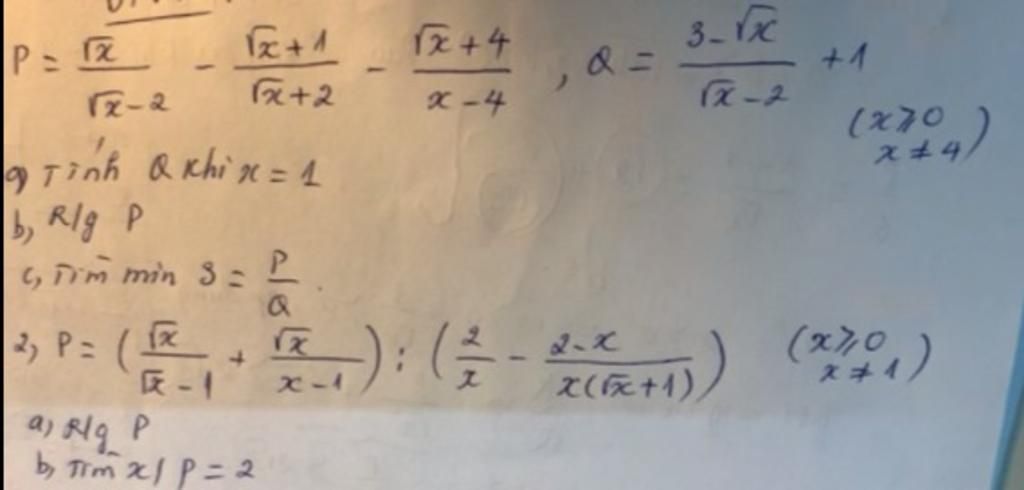 P = \frac{\sqrt{x}}{\sqrt{x}-2} - \frac{\sqrt{x}+1}{\sqrt{x}+2} - \frac{\sqrt{x}+4}{x-4} , Q = \frac{3-\sqrt{x}}{\sqrt{x}-2} + 1 (x ⩾ 0 x ≠ 4)
a) Tính Q khi x = 1
b, R/g P
c, Tìm min S = \frac{P}{Q}.
2, P = (\frac{\sqrt{x}}{\sqrt{x}-1} + \frac{\sqrt{x}}{x-1}) : (\frac{2}{x} - \frac{2-x}{x(\sqrt{x}+1)}) (x ⩾ 0 x ≠ 1)
a, R/g P
b, Tìm x / P = 2